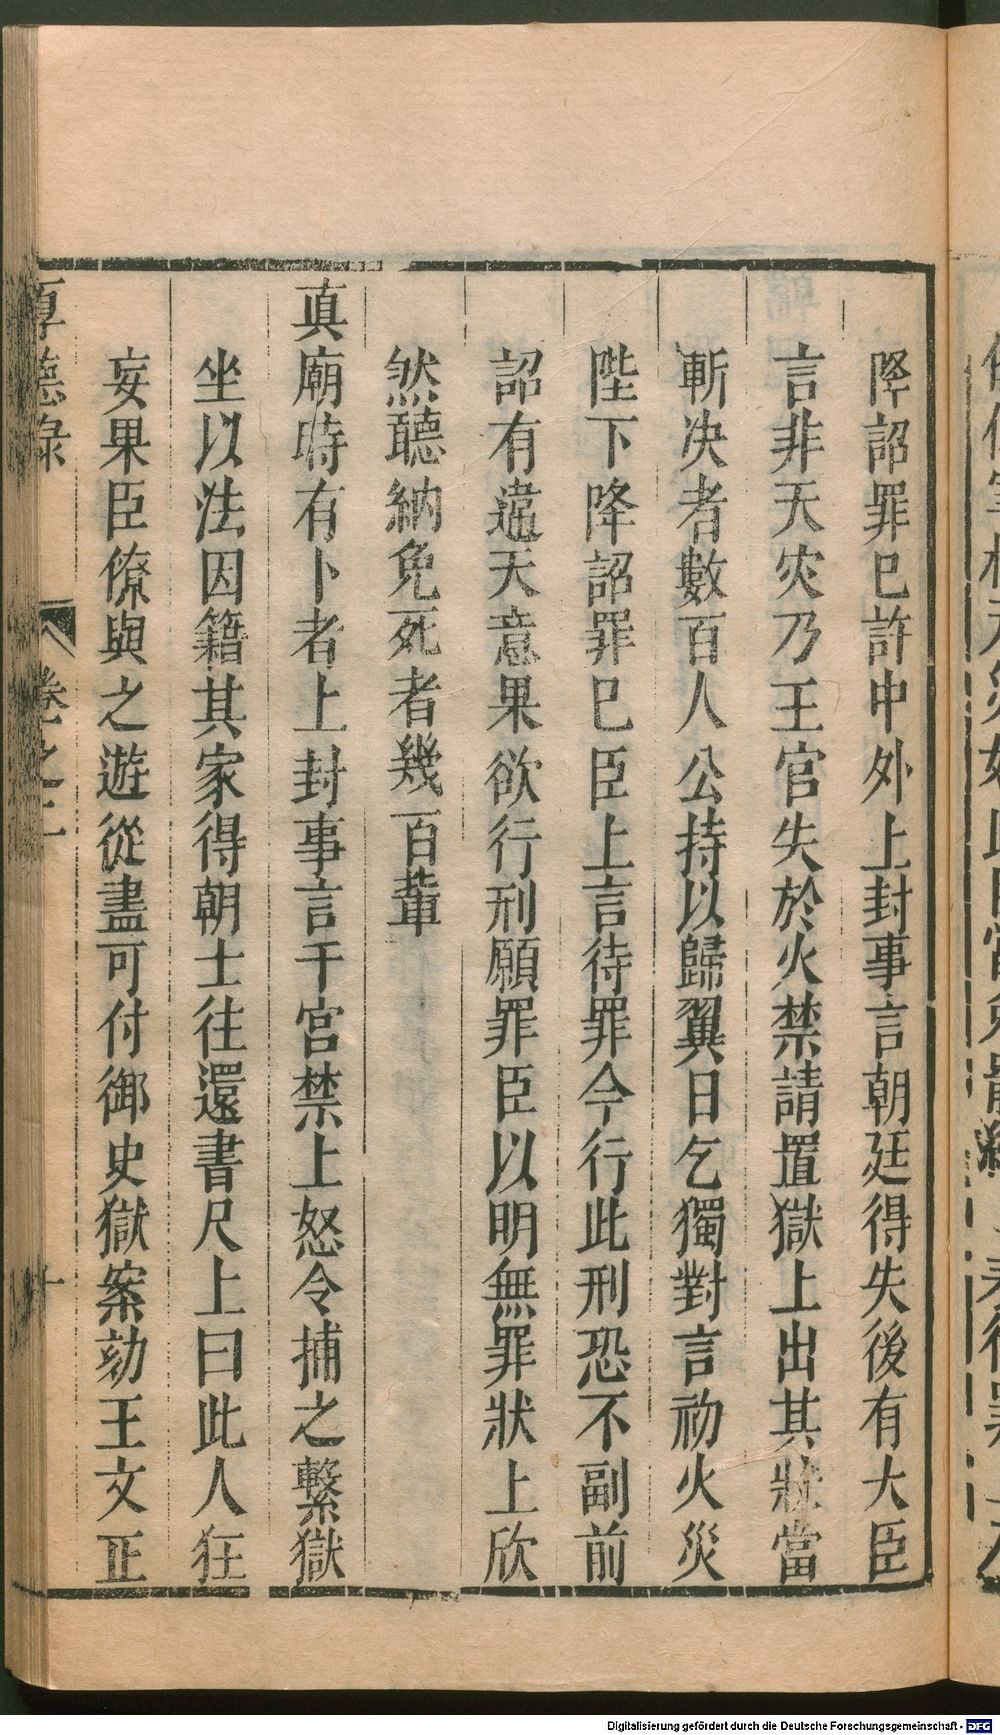 降詔罪已許中外上封事言朝廷得失後有大臣
言非天灾乃王官失於火禁請置獄上出其狀當
斬決者數百人公持以歸翼日乞獨對言初火災
陛下降詔罪已臣上言待罪今行此刑恐不副前
詔有違天意果欲行刑願罪臣以明無罪狀上欣
然聽納免死者幾百輩
真廟時有卜者上封事言干宮禁上怒令捕之繫獄
坐以法因籍其家得朝士往還書尺上曰此人狂
妄果臣僚與之遊從盡可付御史獄案劾王文正
厚德錄 卷之二 十
Digitalisierung gefördert durch die Deutsche Forschungsgemeinschaft - DFG